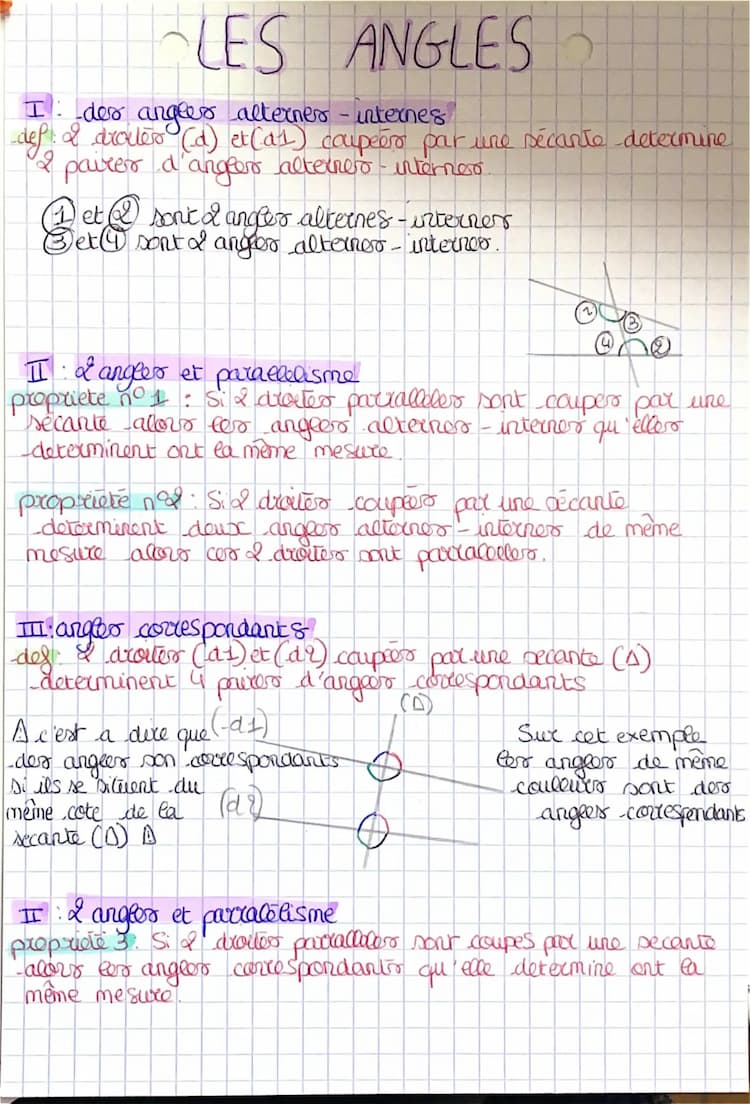 LES ANGLES
I : des angles alternes-internes
def : 2 droites (d) et (d1) coupées par une sécante determine
2 paires d'angles alternes-internes.
① et ② sont 2 angles alternes-internes
③ et ④ sont 2 angles alternes-internes.
① ③
④ ②
II : 2 angles et parallélisme
propriete n°1 : Si 2 droites parralleles sont coupers par une
sécante alors les angles alternes-internes qu'elles
determinent ont la même mesure.
propriété n°2 : Si 2 droites coupées par une sécante
determinent deux angles alternes-internes de même
mesure alors ces 2 droites sont parralleles.
III : angles correspondants
def : 2 droites (d1) et (d2) coupées par une secante (Δ)
determinent 4 paires d'angles correspondants
(Δ)
A c'est a dire que
des angles son correspondants
si ils se situent du
même cote de la
secante (Δ)
(d1)
(d2)
Sur cet exemple
les angles de même
couleurs sont des
angles correspondants
II : 2 angles et parralélisme
propriété 3. Si 2 droites parralleles sont coupes par une secante
alors les angles correspondants qu'elle determine ont la
même mesure.